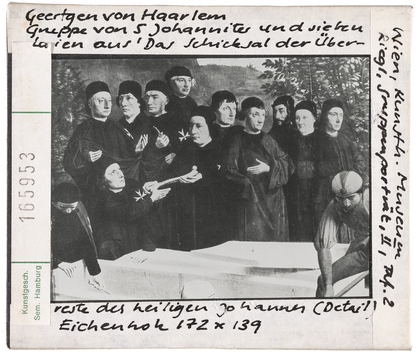 Geertgen van Haarlem
Gruppe von 5 Johannites und sieben
Laien aus 'Das Schicksal der Über-
reste des heiligen Johannes (Detail)
Eichenholz 172 x 139
Wien, Kunsth. Museum
Riegl, Gruppenporträt, II, Taf. 2
165953
Kunstgesch.
Sem. Hamburg